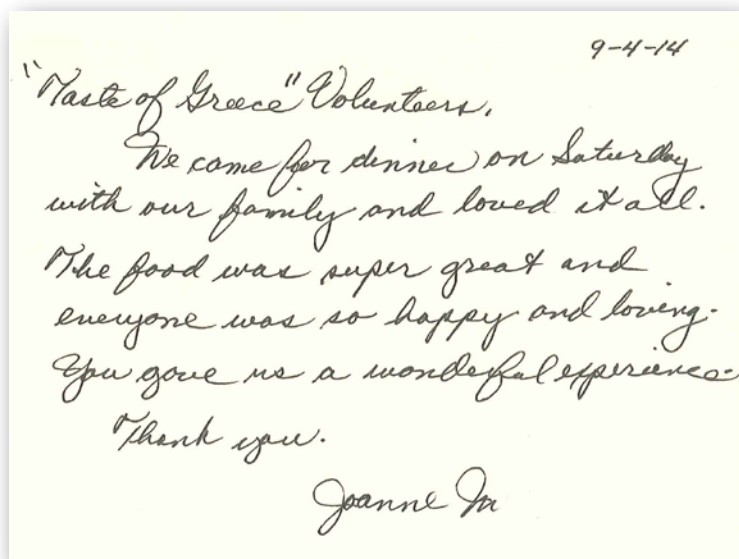 9-4-14
"Taste of Greece" Volunteers,
We came for dinner on Saturday
with our family and loved it all.
The food was super great and
everyone was so happy and loving.
You gave us a wonderful experience.
Thank you.
Joanne M